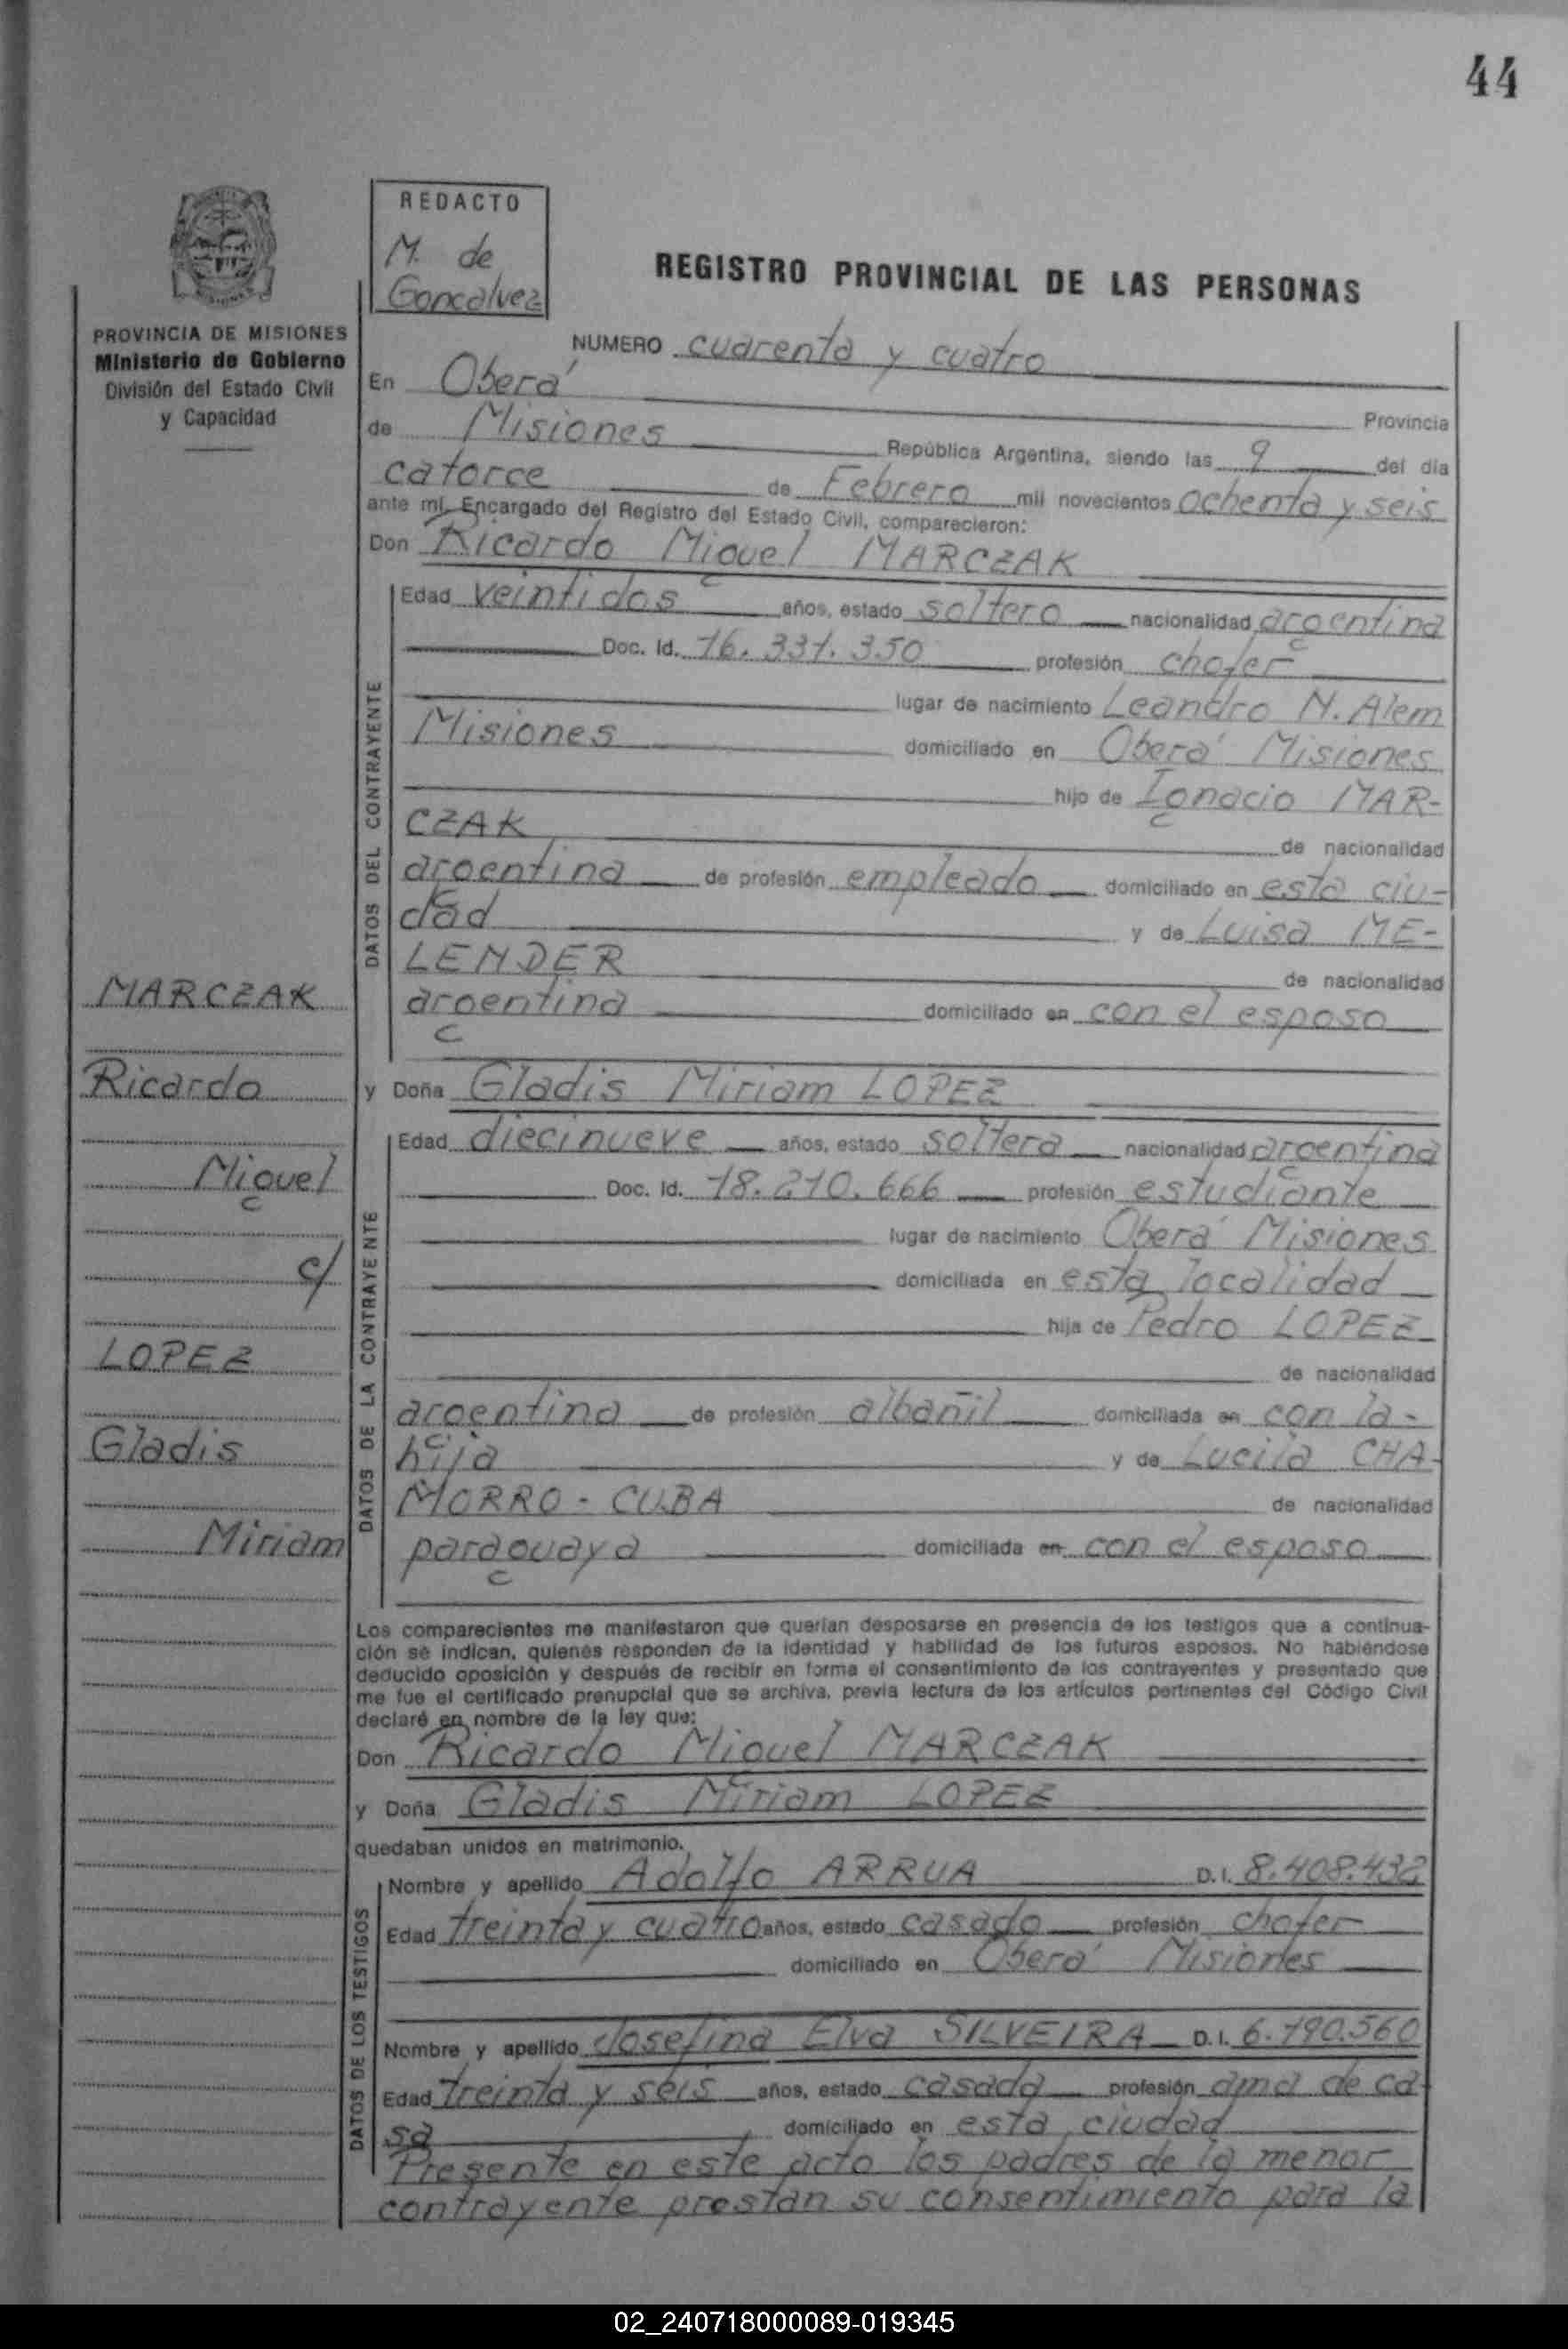 44
REDACTO
M. de
Goncalvez
REGISTRO PROVINCIAL DE LAS PERSONAS
PROVINCIA DE MISIONES
Ministerio de Gobierno
División del Estado Civil
y Capacidad
NUMERO cuarenta y cuatro
En Oberá Provincia
de Misiones República Argentina, siendo las 9 del día
catorce de Febrero mil novecientos ochenta y seis
ante mí, Encargado del Registro del Estado Civil, comparecieron:
Don Ricardo Miguel MARCZAK
DATOS DEL CONTRAYENTE
Edad veintidos años, estado soltero nacionalidad argentina
Doc. Id. 16.331.350 profesión chofer
lugar de nacimiento Leandro N. Alem
Misiones domiciliado en Oberá Misiones
hijo de Ignacio MAR-
CZAK de nacionalidad
argentina de profesión empleado domiciliado en esta ciu-
dad y de Luisa ME-
LENDER de nacionalidad
argentina domiciliado en con el esposo
MARCZAK
Ricardo
Miguel
c/
LOPEZ
Gladis
Miriam
y Doña Gladis Miriam LOPEZ
DATOS DE LA CONTRAYENTE
Edad diecinueve años, estado soltera nacionalidad argentina
Doc. Id. 18.210.666 profesión estudiante
lugar de nacimiento Oberá Misiones
domiciliada en esta localidad
hija de Pedro LOPEZ
de nacionalidad
argentina de profesión albañil domiciliada en con la-
hija y de Lucila CHA-
MORRO - CUBA de nacionalidad
paraguaya domiciliada en con el esposo
Los comparecientes me manifestaron que querían desposarse en presencia de los testigos que a continua-
ción se indican, quienes responden de la identidad y habilidad de los futuros esposos. No habiéndose
deducido oposición y después de recibir en forma el consentimiento de los contrayentes y presentado que
me fue el certificado prenupcial que se archiva, previa lectura de los artículos pertinentes del Código Civil
declaré en nombre de la ley que:
Don Ricardo Miguel MARCZAK
y Doña Gladis Miriam LOPEZ
quedaban unidos en matrimonio.
DATOS DE LOS TESTIGOS
Nombre y apellido Adolfo ARRUA D.I. 8.408.432
Edad treinta y cuatro años, estado casado profesión chofer
domiciliado en Oberá Misiones
Nombre y apellido Josefina Elva SILVEIRA D.I. 6.190.560
Edad treinta y seis años, estado casada profesión ama de ca-
sa domiciliado en esta ciudad
Presente en este acto los padres de la menor
contrayente prestan su consentimiento para la
02_240718000089-019345